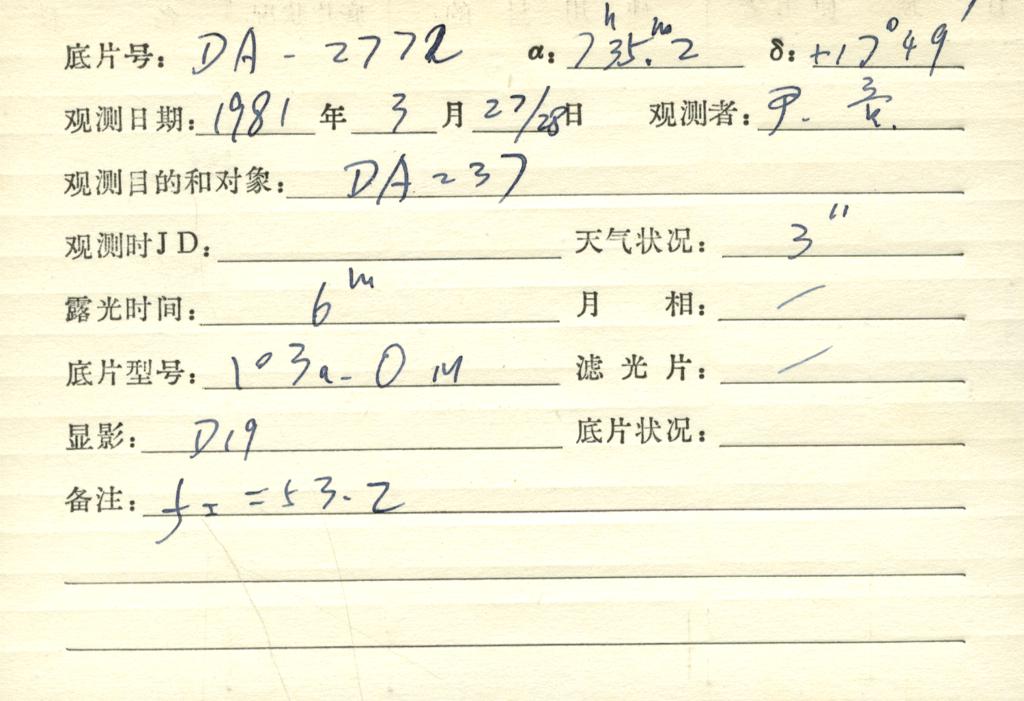 底片号: DA-2772 α: 7ʰ35.ᵐ2 δ: +17°49′
观测日期: 1981 年 3 月 27/28日 观测者: 尹.
观测目的和对象: DA=37
观测时JD: 天气状况: 3″
露光时间: 6ᵐ 月 相: /
底片型号: 103a-O 滤光片: /
显影: D19 底片状况:
备注: =53.2